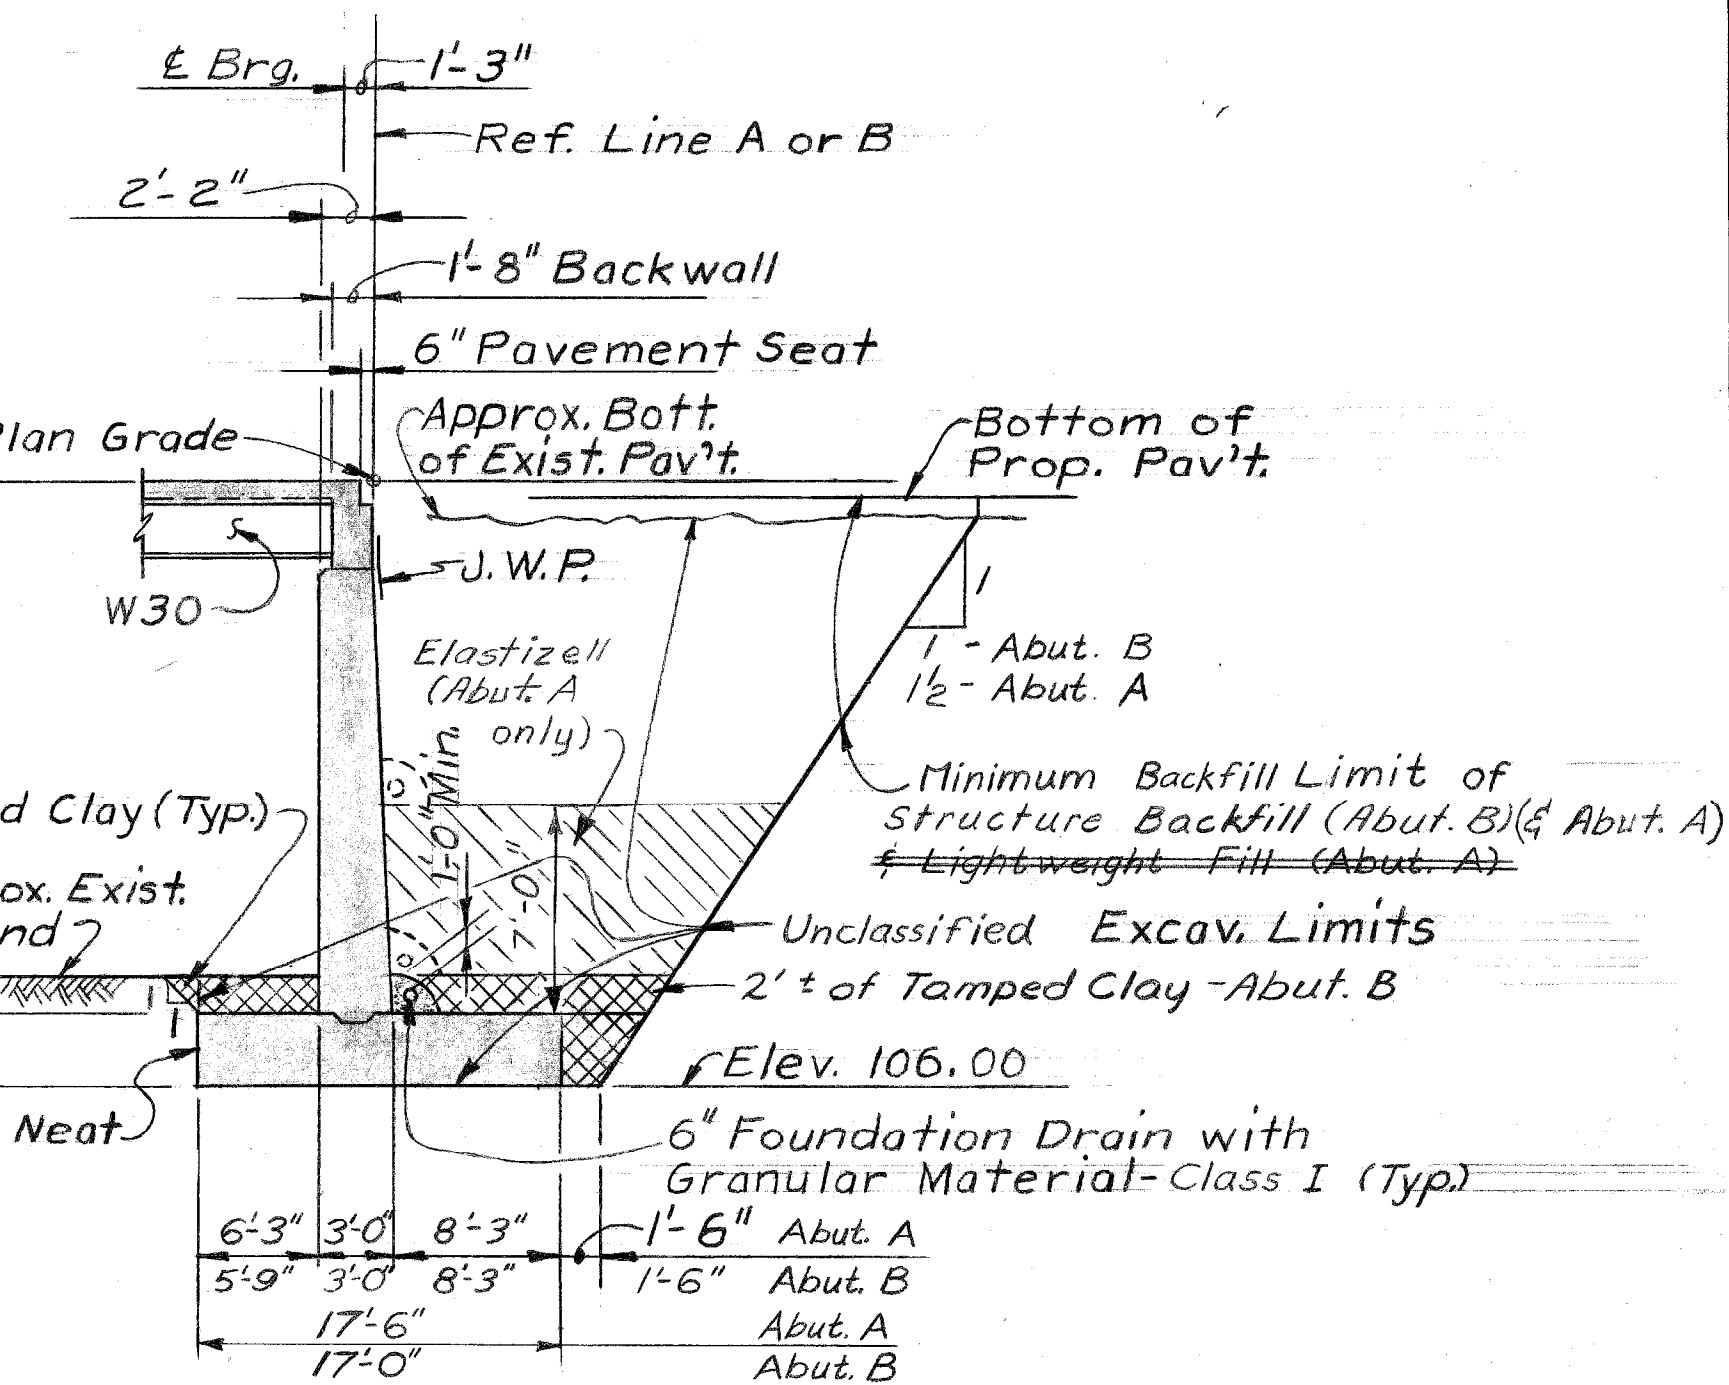 ℄ Brg.
1'-3"
Ref. Line A or B
2'-2"
1'-8" Backwall
6" Pavement Seat
Plan Grade
Approx. Bott.
of Exist. Pav't.
Bottom of
Prop. Pav't.
J.W.P.
W30
1
1 - Abut. B
1½ - Abut. A
Elastizell
(Abut. A
only)
1'-0" Min.
7'-0"
Minimum Backfill Limit of
Structure Backfill (Abut. B)(& Abut. A)
& Lightweight Fill (Abut. A)
d Clay (Typ.)
ox. Exist.
nd
Unclassified Excav. Limits
2' ± of Tamped Clay - Abut. B
1
Elev. 106.00
Neat
6" Foundation Drain with
Granular Material - Class I (Typ.)
6'-3" 3'-0" 8'-3" 1'-6" Abut. A
5'-9" 3'-0" 8'-3" 1'-6" Abut. B
17'-6" Abut. A
17'-0" Abut. B